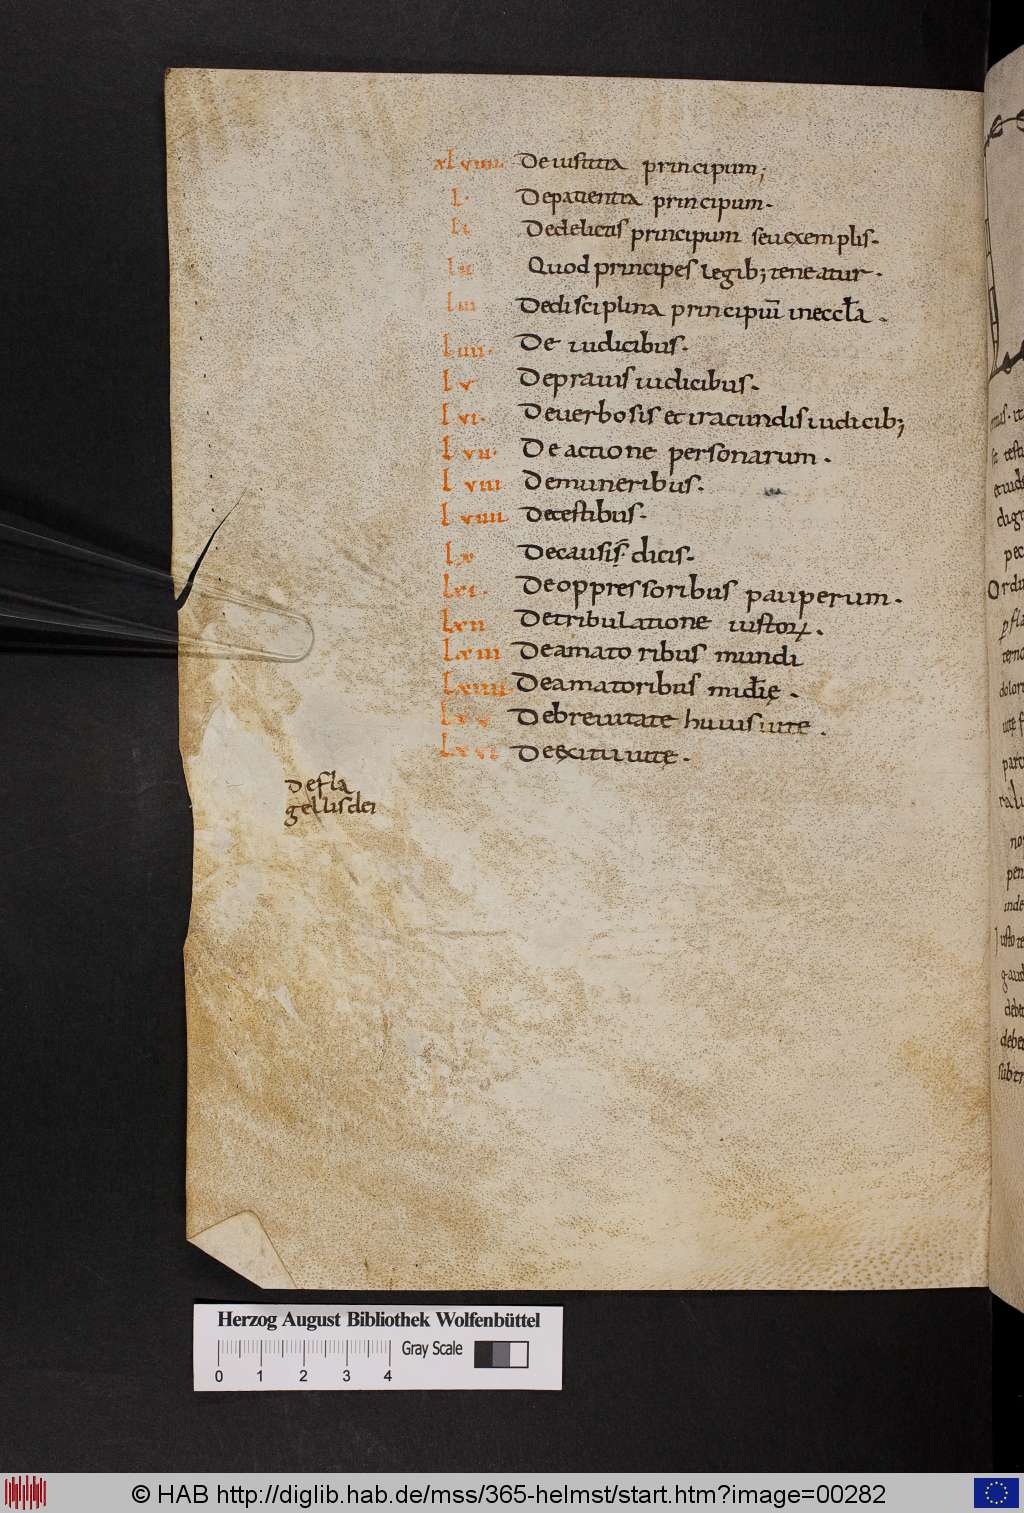 xlviiii. De iustitia principum;
l. De patientia principum.
li De delictis principum seu exemplis.
lii Quod principes legib; teneatur.
liii De disciplina principiū in eccła.
liiii. De iudicibus.
lv De prauis iudicibus.
lvi. De uerbosis et iracundis iudicib;
lvii. De actione personarum.
lviii De muneribus.
lviiii De testibus.
lx De causis dicis.
lxi. De oppressoribus pauperum.
lxii De tribulatione iustoꝝ.
lxiii De amatoribus mundi
lxiiii. De amatoribus mid̄ię.
lxv De breuitate huius uite.
lxvi De exitu uitę.
De fla
gellis dei
Herzog August Bibliothek Wolfenbüttel
Gray Scale
0 1 2 3 4
© HAB http://diglib.hab.de/mss/365-helmst/start.htm?image=00282